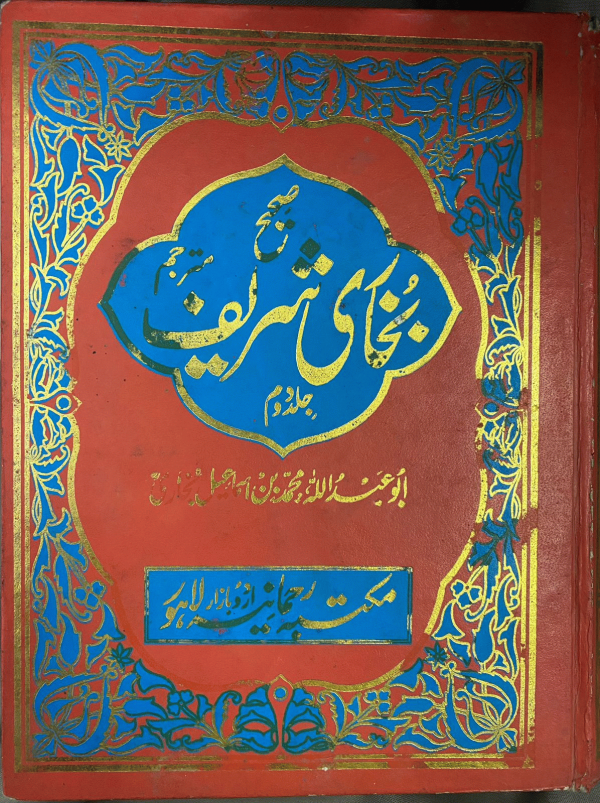 صحیح
بخاری شریف
مترجم
جلد دوم
ابو عبد اللہ محمد بن اسماعیل بخاری
مکتبہ رحمانیہ اردو بازار لاہور